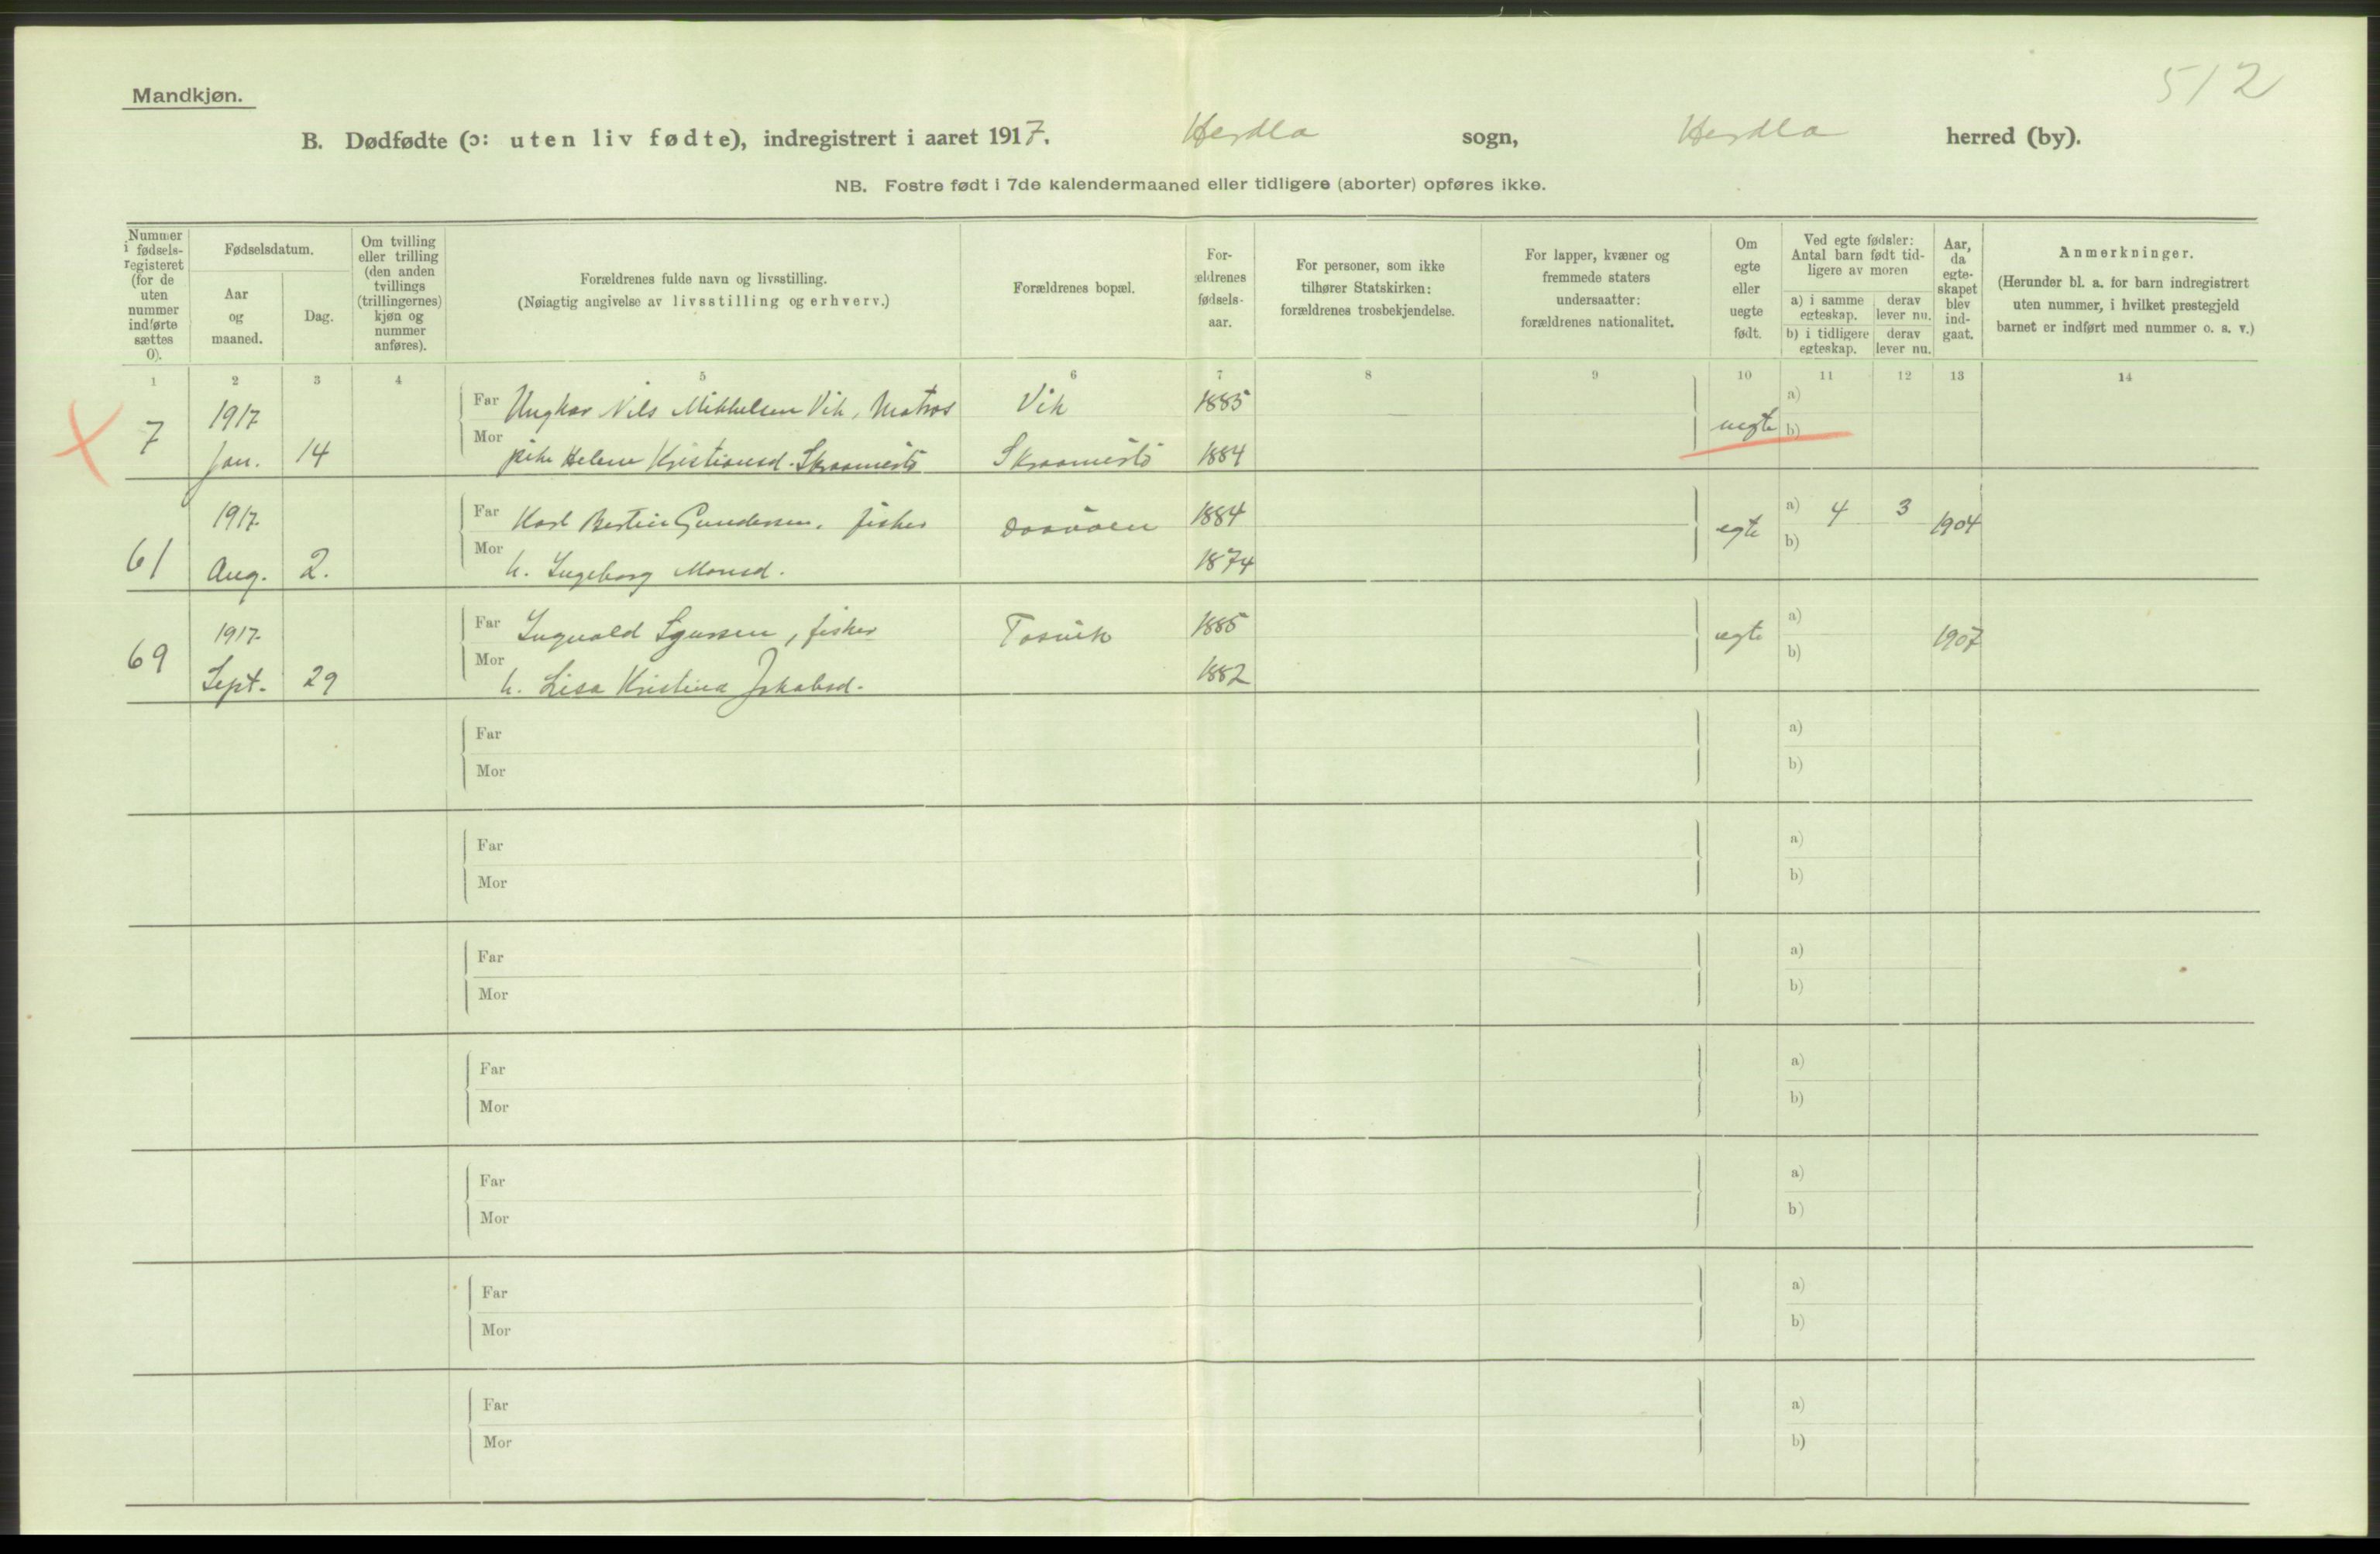 512
Mandkjøn.
B. Dødfødte (ɔ: uten liv fødte), indregistrert i aaret 1917. Herdla sogn, Herdla herred (by).
NB. Fostre født i 7de kalendermaaned eller tidligere (aborter) opføres ikke.
Nummer i fødsels-registeret (for de uten nummer indførte sættes 0).
Fødselsdatum.
Aar og maaned.
Dag.
Om tvilling eller trilling (den anden tvillings (trillingernes) kjøn og nummer anføres).
Forældrenes fulde navn og livsstilling.
(Nøiagtig angivelse av livsstilling og erhverv.)
Forældrenes bopæl.
For-ældrenes fødsels-aar.
For personer, som ikke tilhører Statskirken: forældrenes trosbekjendelse.
For lapper, kvæner og fremmede staters undersaatter: forældrenes nationalitet.
Om egte eller uegte født.
Ved egte fødsler: Antal barn født tid-ligere av moren
a) i samme egteskap. derav lever nu.
b) i tidligere egteskap. derav lever nu.
Aar, da egte-skapet blev ind-gaat.
Anmerkninger.
(Herunder bl. a. for barn indregistrert uten nummer, i hvilket prestegjeld barnet er indført med nummer o. s. v.)
1 2 3 4 5 6 7 8 9 10 11 12 13 14
7 1917 Jan. 14
Far Ungkar Nils Mikkelsen Vik, Matros Vik 1885 uegte a)
Mor pike Helene Kristiansd. 1884 b)
61 1917 Aug. 2.
Far Karl Bertin Gundersen, fisker 1884 egte a) 4 3 1904
Mor h. Ingeborg Monsd. 1874 b)
69 1917 Sept. 29
Far Ingvald fisker 1885 egte a) 1907
Mor h. Lisa Kristina Jakobsd. 1882 b)
Far a)
Mor b)
Far a)
Mor b)
Far a)
Mor b)
Far a)
Mor b)
Far a)
Mor b)
Far a)
Mor b)
Far a)
Mor b)